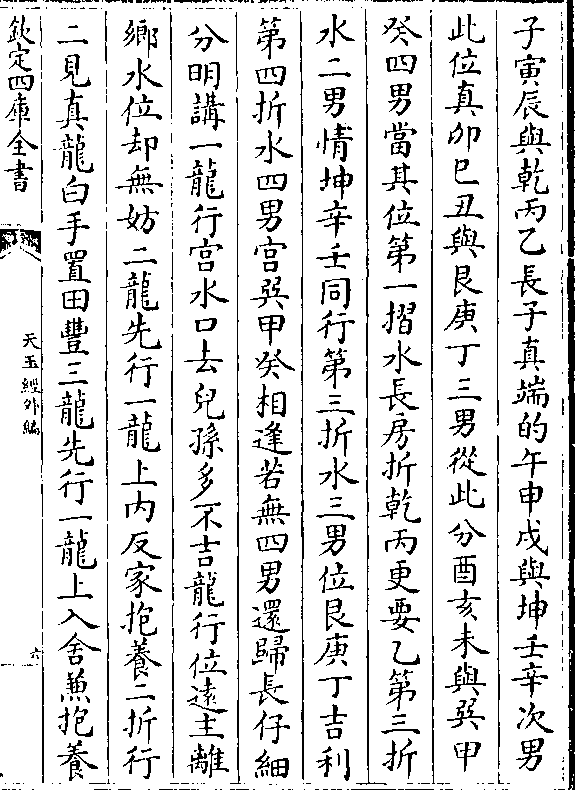 子寅辰與乾丙乙長子真端的午申戌與坤壬辛次男
此位真卯巳丑與艮庚丁三男從此分酉亥未與巽甲
癸四男當其位第一摺水長房折乾丙更要乙第三折
水二男情坤辛壬同行第三折水三男位艮庚丁吉利
第四折水四男宫巽甲癸相逢若無四男還歸長仔細
分明講一龍行宫水口去兒孫多不吉龍行位逺主離
鄉水位却無妨二龍先行一龍上内反家抱養二折行
二見真龍白手置田豐三龍先行一龍上入舍兼抱養
欽定四庫全書
天玉經外編
六